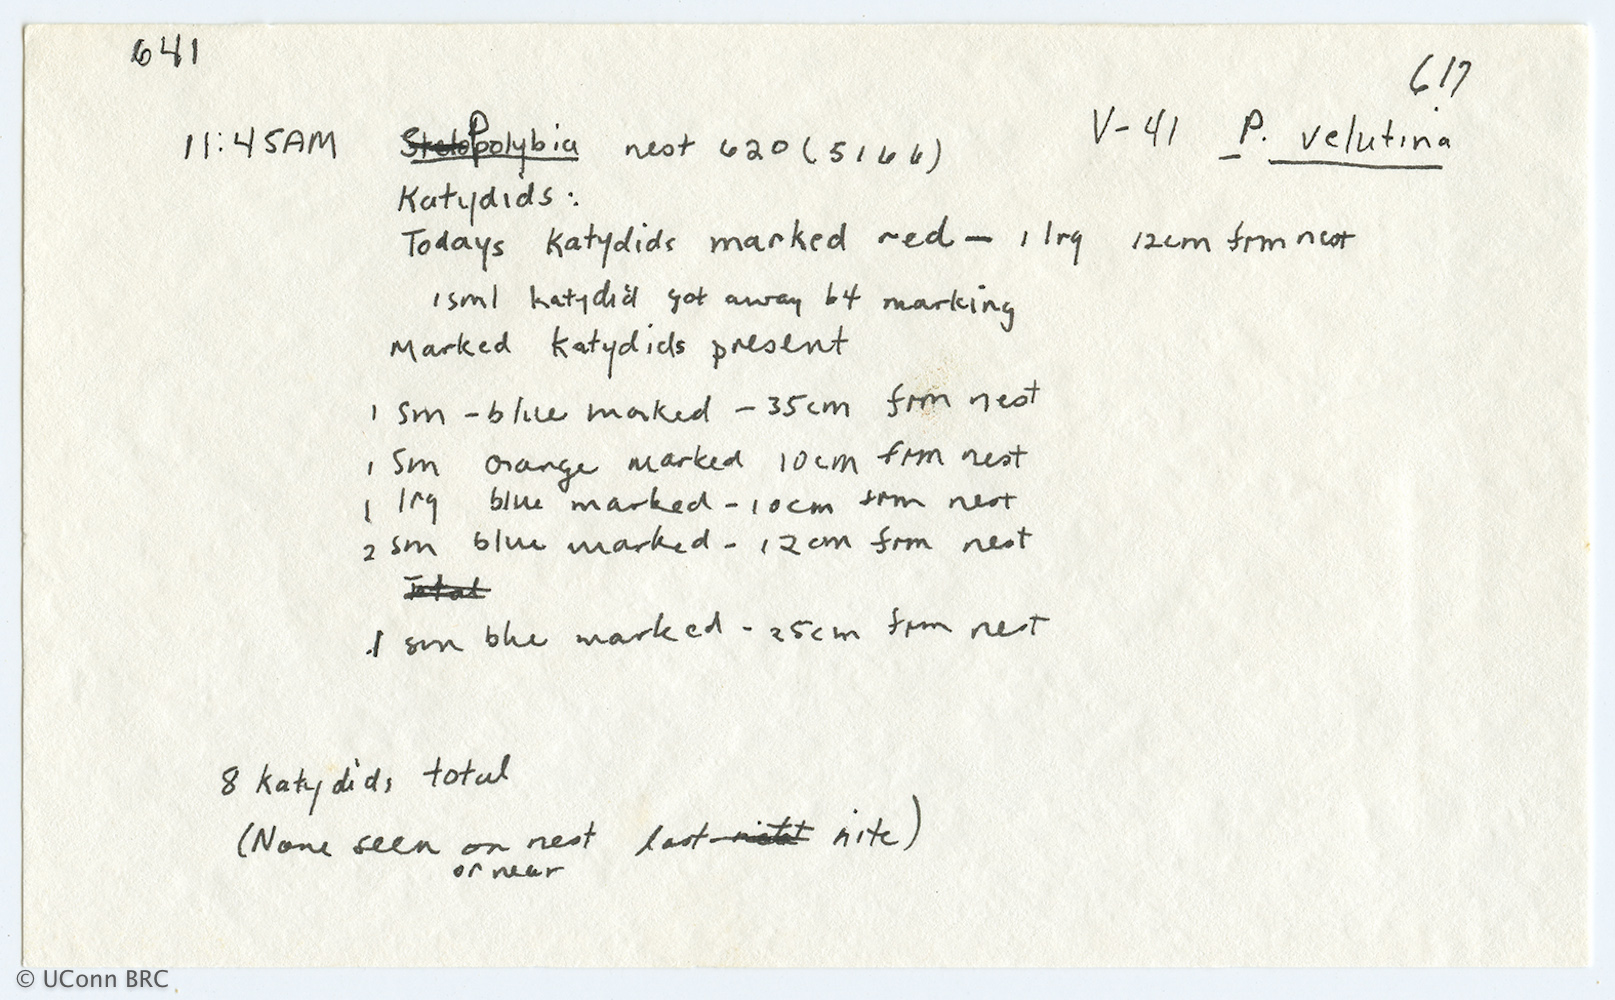 641
617
11:45AM Stelopolybia nest 620 (5166) V-41 P. velutina
Katydids:
Todays Katydids marked red – 1 lrg 12cm frm nest
1 sml katydid got away b4 marking
Marked Katydids present
1 sm - blue marked - 35cm frm nest
1 Sm orange marked 10cm frm nest
1 lrg blue marked - 10cm frm nest
2 sm blue marked - 12cm frm nest
Total
1 sm blue marked - 25cm frm nest
8 Katydids total
(None seen on nest last night nite)
or near
© UConn BRC